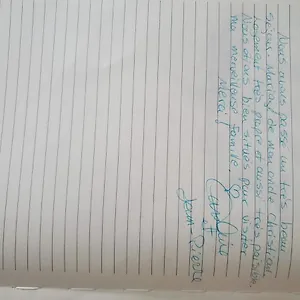 Nous avons passé un très beau
séjour. Mariage de mon oncle Christian.
Logement très propre et aussi très paisible.
Nous étions bien situés pour visiter
ma merveilleuse famille.
Merci!
Jean-Pierre